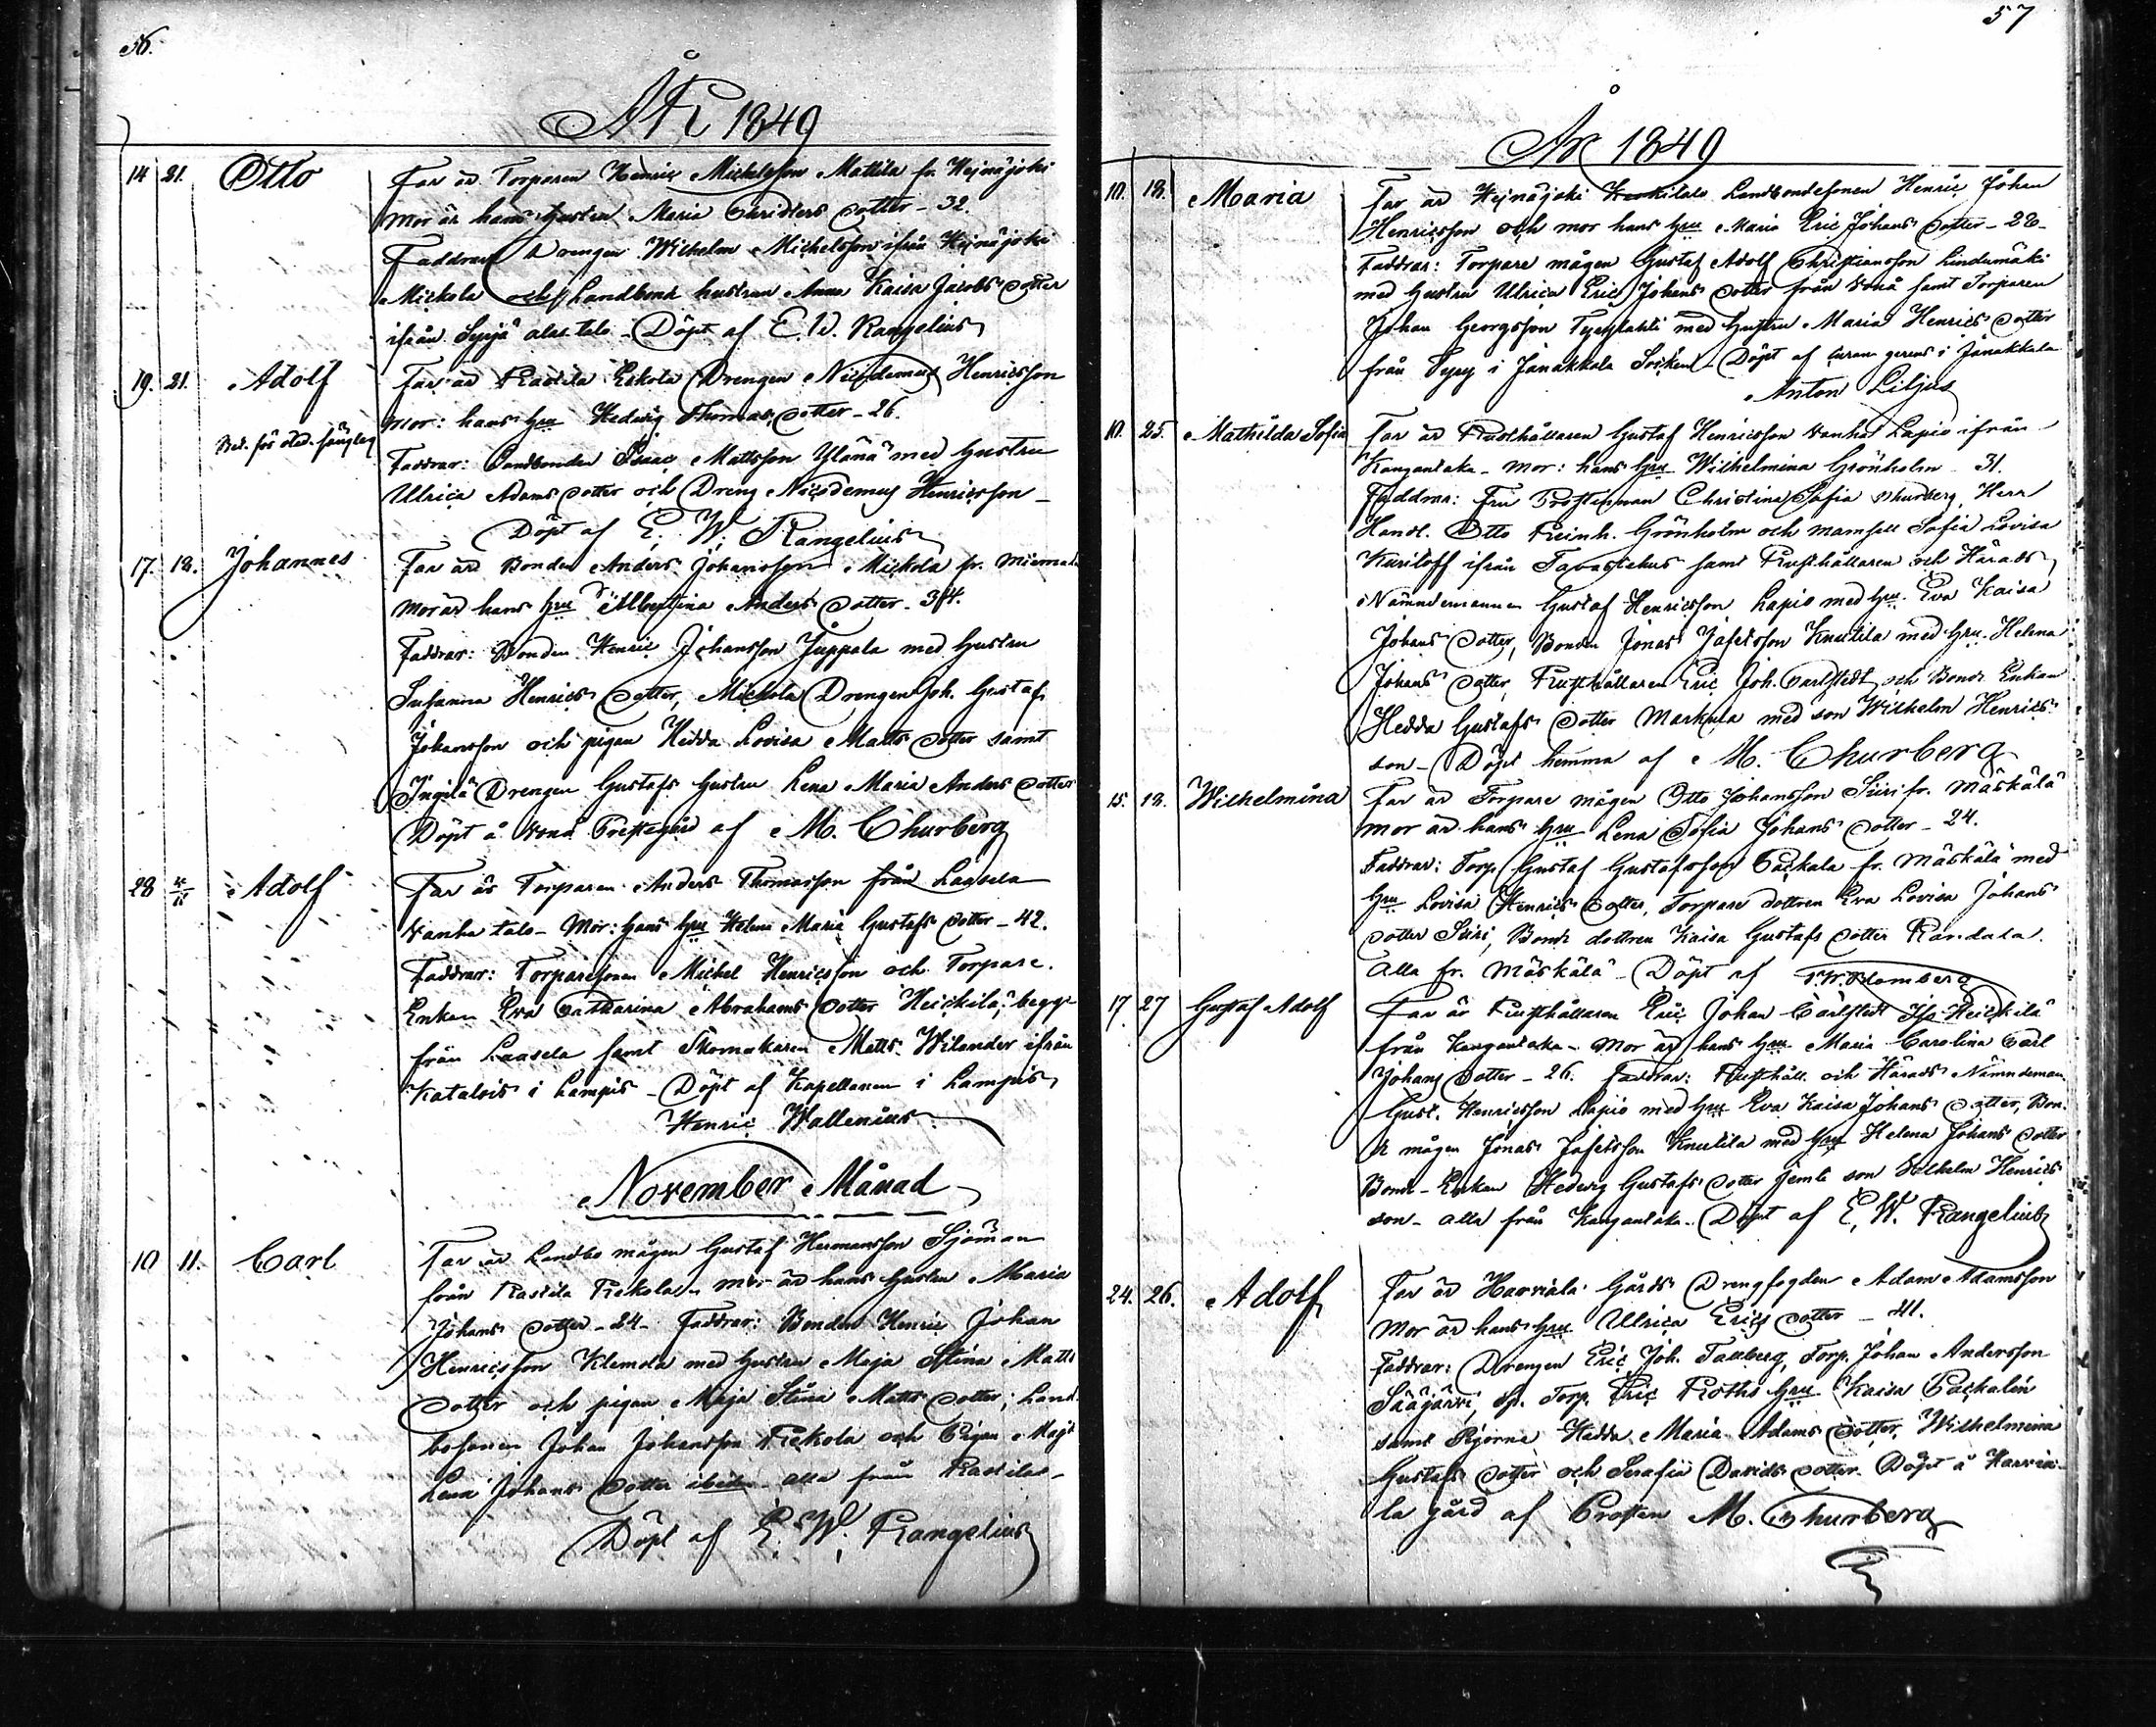 56.
ÅR 1849
14 21. Otto Far är Torparen Henric Michelsson Mattila fr. Hejnäjoki
Mor är hans hustru Maria Christers dotter - 32.
Faddrar Drengen Wilhelm Michelsson ifrån Hejnäjoki
Mickola och Landbonde hustrun Anna Kaisa Jacobs dotter
ifrån Syrjä alastalo - Döpt af E. W. Rangelius
19. 21. Adolf Far är Rastila Eskola Drengen Nicodemus Henricsson
mor: hans hru Hedvig Thomas dotter - 26.
Faddrar: Landbonden Isaac Mattsson Ylänä med hustru
Ulrica Adams dotter och Dreng Nicodemus Henricsson -
Döpt af E. W. Rangelius
17. 18. Johannes Far är Bonden Anders Johansson Mickola fr.
Mor är hans hru Albertina Anders dotter - 34.
Faddrar: Bonden Henric Johansson Juppala med hustru
Susanna Henrics dotter, Mickola Drengen Joh. Gustaf
Johansson och pigan Hedda Lovisa Matts dotter samt
Ingilä Drengen Gustafs hustru Lena Maria Anders dotter
Döpt å Vånå Prestegård af M. Churberg
28 4/11 Adolf Far är Torparen Anders Thomasson från Laasela
Vanha talo - Mor: hans hru Helena Maria Gustafs dotter - 42.
Faddrar: Torparesonen Michel Henricsson och Torpare
Enkan Eva Catharina Abrahams dotter Heickilä, begge
från Laasela samt Skomakaren Matts Wilander ifrån
Katalois i Lampis - Döpt af Kapellanen i Lampis
Henric Wallenius
November Månad
10 11. Carl Far är Landbo mågen Gustaf Hermansson Sjöman
från Rastila Rekola - mor är hans hustru Maria
Johans dotter - 24 - Faddrar: Bonden Henric Johan
Henricsson Klemola med hustru Maja Stina Matts
dotter och pigan Maja Stina Matts dotter, Land-
bosonen Johan Johansson Rekola och Pigan Maja
Lena Johans dotter ibidem alla från Rastila -
Döpt af E. W. Rangelius
57
År 1849
10. 18. Maria Far är Hejnäjoki Landbondesonen Henric Johan
Henricsson och mor hans hru Maria Eric Johans dotter - 28 -
Faddrar: Torpare mågen Gustaf Adolf Christiansson Lindumäki
med hustru Ulrica Eric Johans dotter från Vånå samt Torparen
Johan Georgsson med hustru Maria Henrics dotter
från i Janakkala Socken - Döpt af i Janakkala
Anton Lilius
10. 25. Mathilda Sofia Far är Rusthållaren Gustaf Henricsson Vanha Lapio ifrån
Kangantaka - mor: hans hru Wilhelmina Grönholm 31.
Faddrar: Fru Prostinnan Christina Sofia Churberg, Herr
Handl. Otto Reinh. Grönholm och mamsell Sofia Lovisa
Kuriloff ifrån Tavastehus samt Rusthållaren och Härads
Nämndemannen Gustaf Henricsson Lapio med hru Eva Kaisa
Johans dotter, Bonden Jonas Jafetsson Knutila med hru Helena
Johans dotter, Rusthållaren Eric Joh. Carlstedt och Bonde Enkan
Hedda Gustafs dotter Markula med son Wilhelm Henrics
son - Döpt hemma af M. Churberg
15. 18. Wilhelmina Far är Torpare mågen Otto Johansson Siiri fr. Mäskälä
mor är hans hru Lena Sofia Johans dotter - 24.
Faddrar: Torp. Gustaf Gustafsson Packala fr. Mäskälä med
hru Lovisa Henrics dotter, Torpare dottren Eva Lovisa Johans
dotter Siiri, Bonde dottren Kaisa Gustafs dotter Randala.
alla fr. Mäskälä - Döpt af Blomberg
17. 27 Gustaf Adolf Far är Rusthållaren Eric Johan Carlstedt Heickilä
från Kangantaka - Mor är hans hru Maria Carolina Carl
Johans dotter - 26. Faddrar: Rusthåll. och Härads Nämndeman
Gust. Henricsson Lapio med hru Eva Kaisa Johans dotter, Bon-
de mågen Jonas Jafetsson Knutila med hru Helena Johans dotter
Bonde-Enkan Hedvig Gustafs dotter jemte son Wilhelm Henrics
son - alla från Kangantaka. Döpt af E. W. Rangelius
24. 26. Adolf Far är Harviala Gårds Drengfogden Adam Adamsson
Mor är hans hru Ulrica Erics dotter - 41.
Faddrar: Drengen Eric Joh. Tallberg, Torp. Johan Andersson
Sääjärvi, Torp. Eric Roths hru Kaisa Packalén
samt Pigorna Hedda Maria Adams dotter, Wilhelmina
Gustafs dotter och Serafia Davids dotter. Döpt å Harvia-
la gård af Prosten M. Churberg